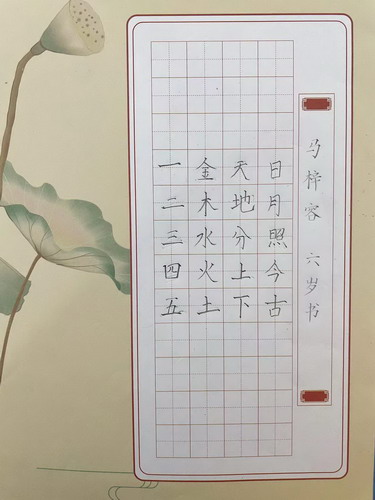 一二三四五
金木水火土
天地分上下
日月照今古
马梓容 六岁书